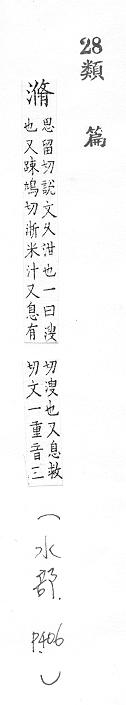 28 類篇
滫
思留切說文久泔也一曰溲
也又踈鳩切淅米汁又息有
切溲也又息救
切文一重音三
(水部. P406)